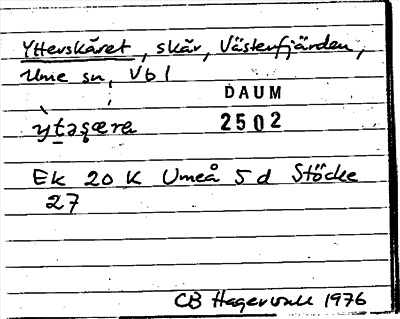 Ytterskäret, skär, Västerfjärden,
Ume sn, Vbl
DAUM
ỳtəşæra 2502
Ek 20 K Umeå 5 d Stöcke
27
CB Hagervall 1976